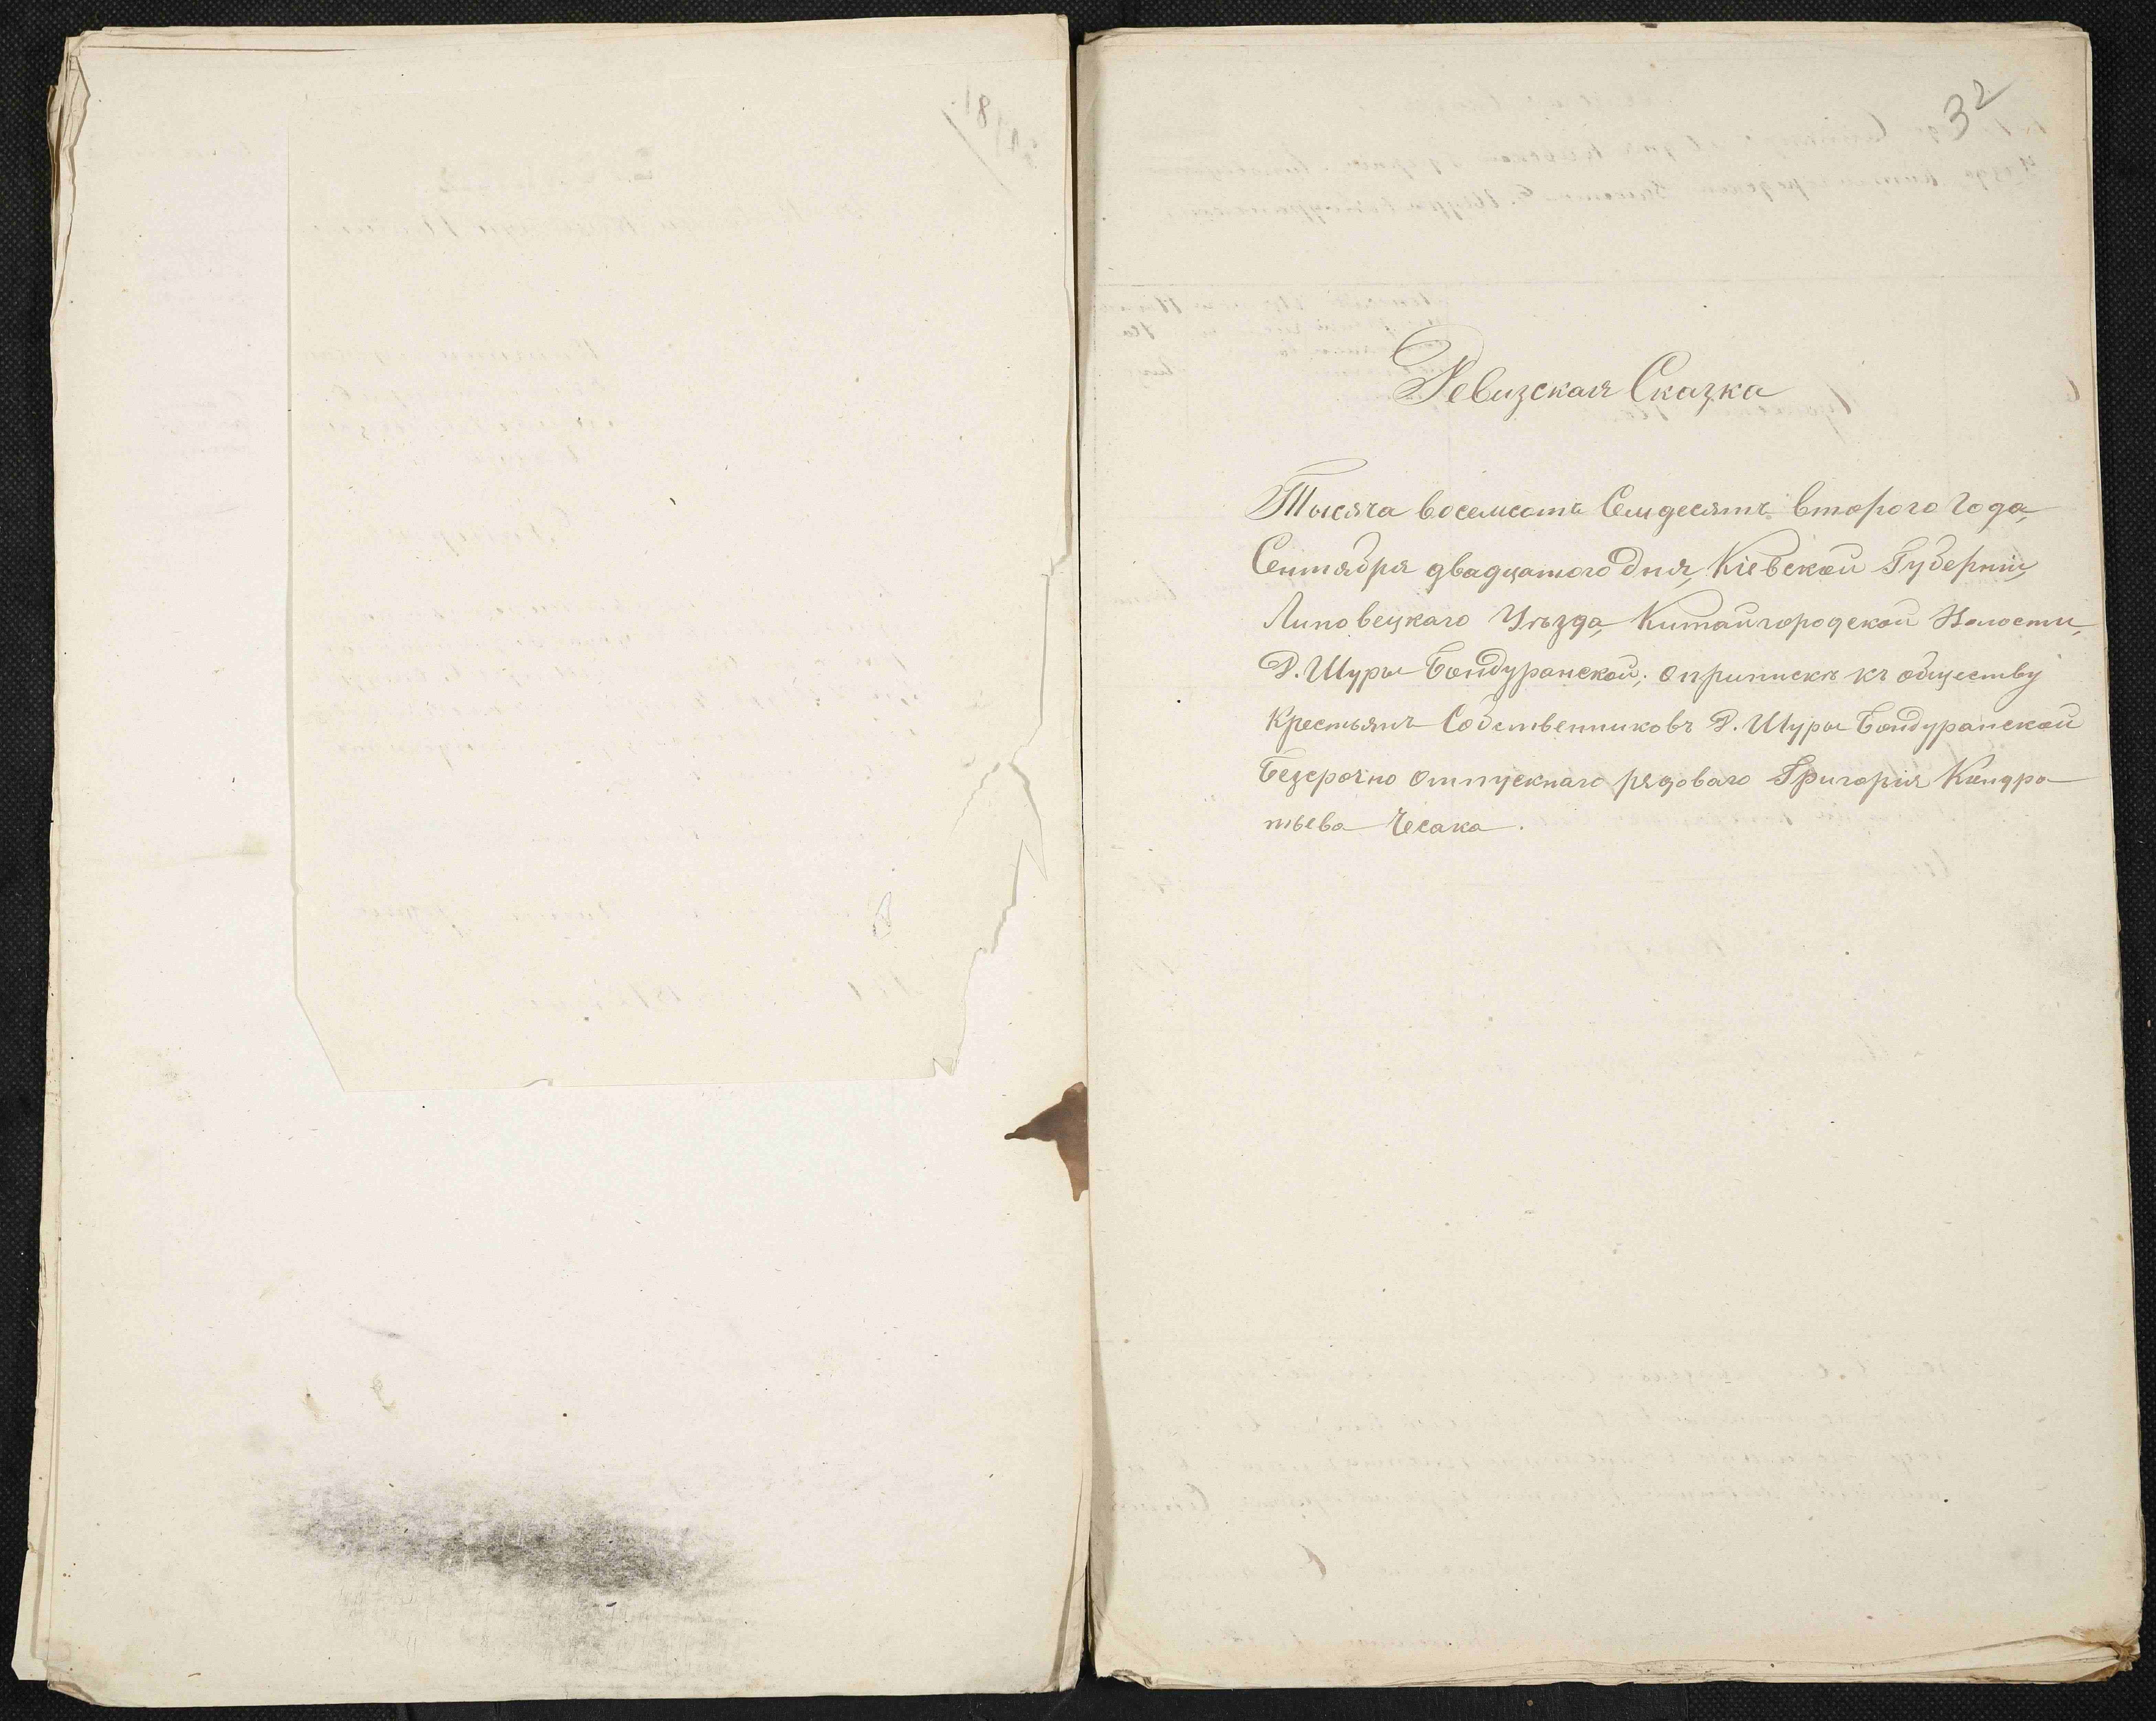 32
Ревизская Сказка
Тысяча восемсотъ Семдесятъ второго Года,
Сентября двадцатого Дня, Кіевской Губерніи,
Липовецкаго Уѣзда, Китайгородской Волости,
Д. Шуры Бондуранской; о припискѣ къ обществу
Крестьянъ Собственниковъ Д. Шуры Бондуранской
Безсрочно отпускнаго рядоваго Григорія Кондра
тьева Чесака.